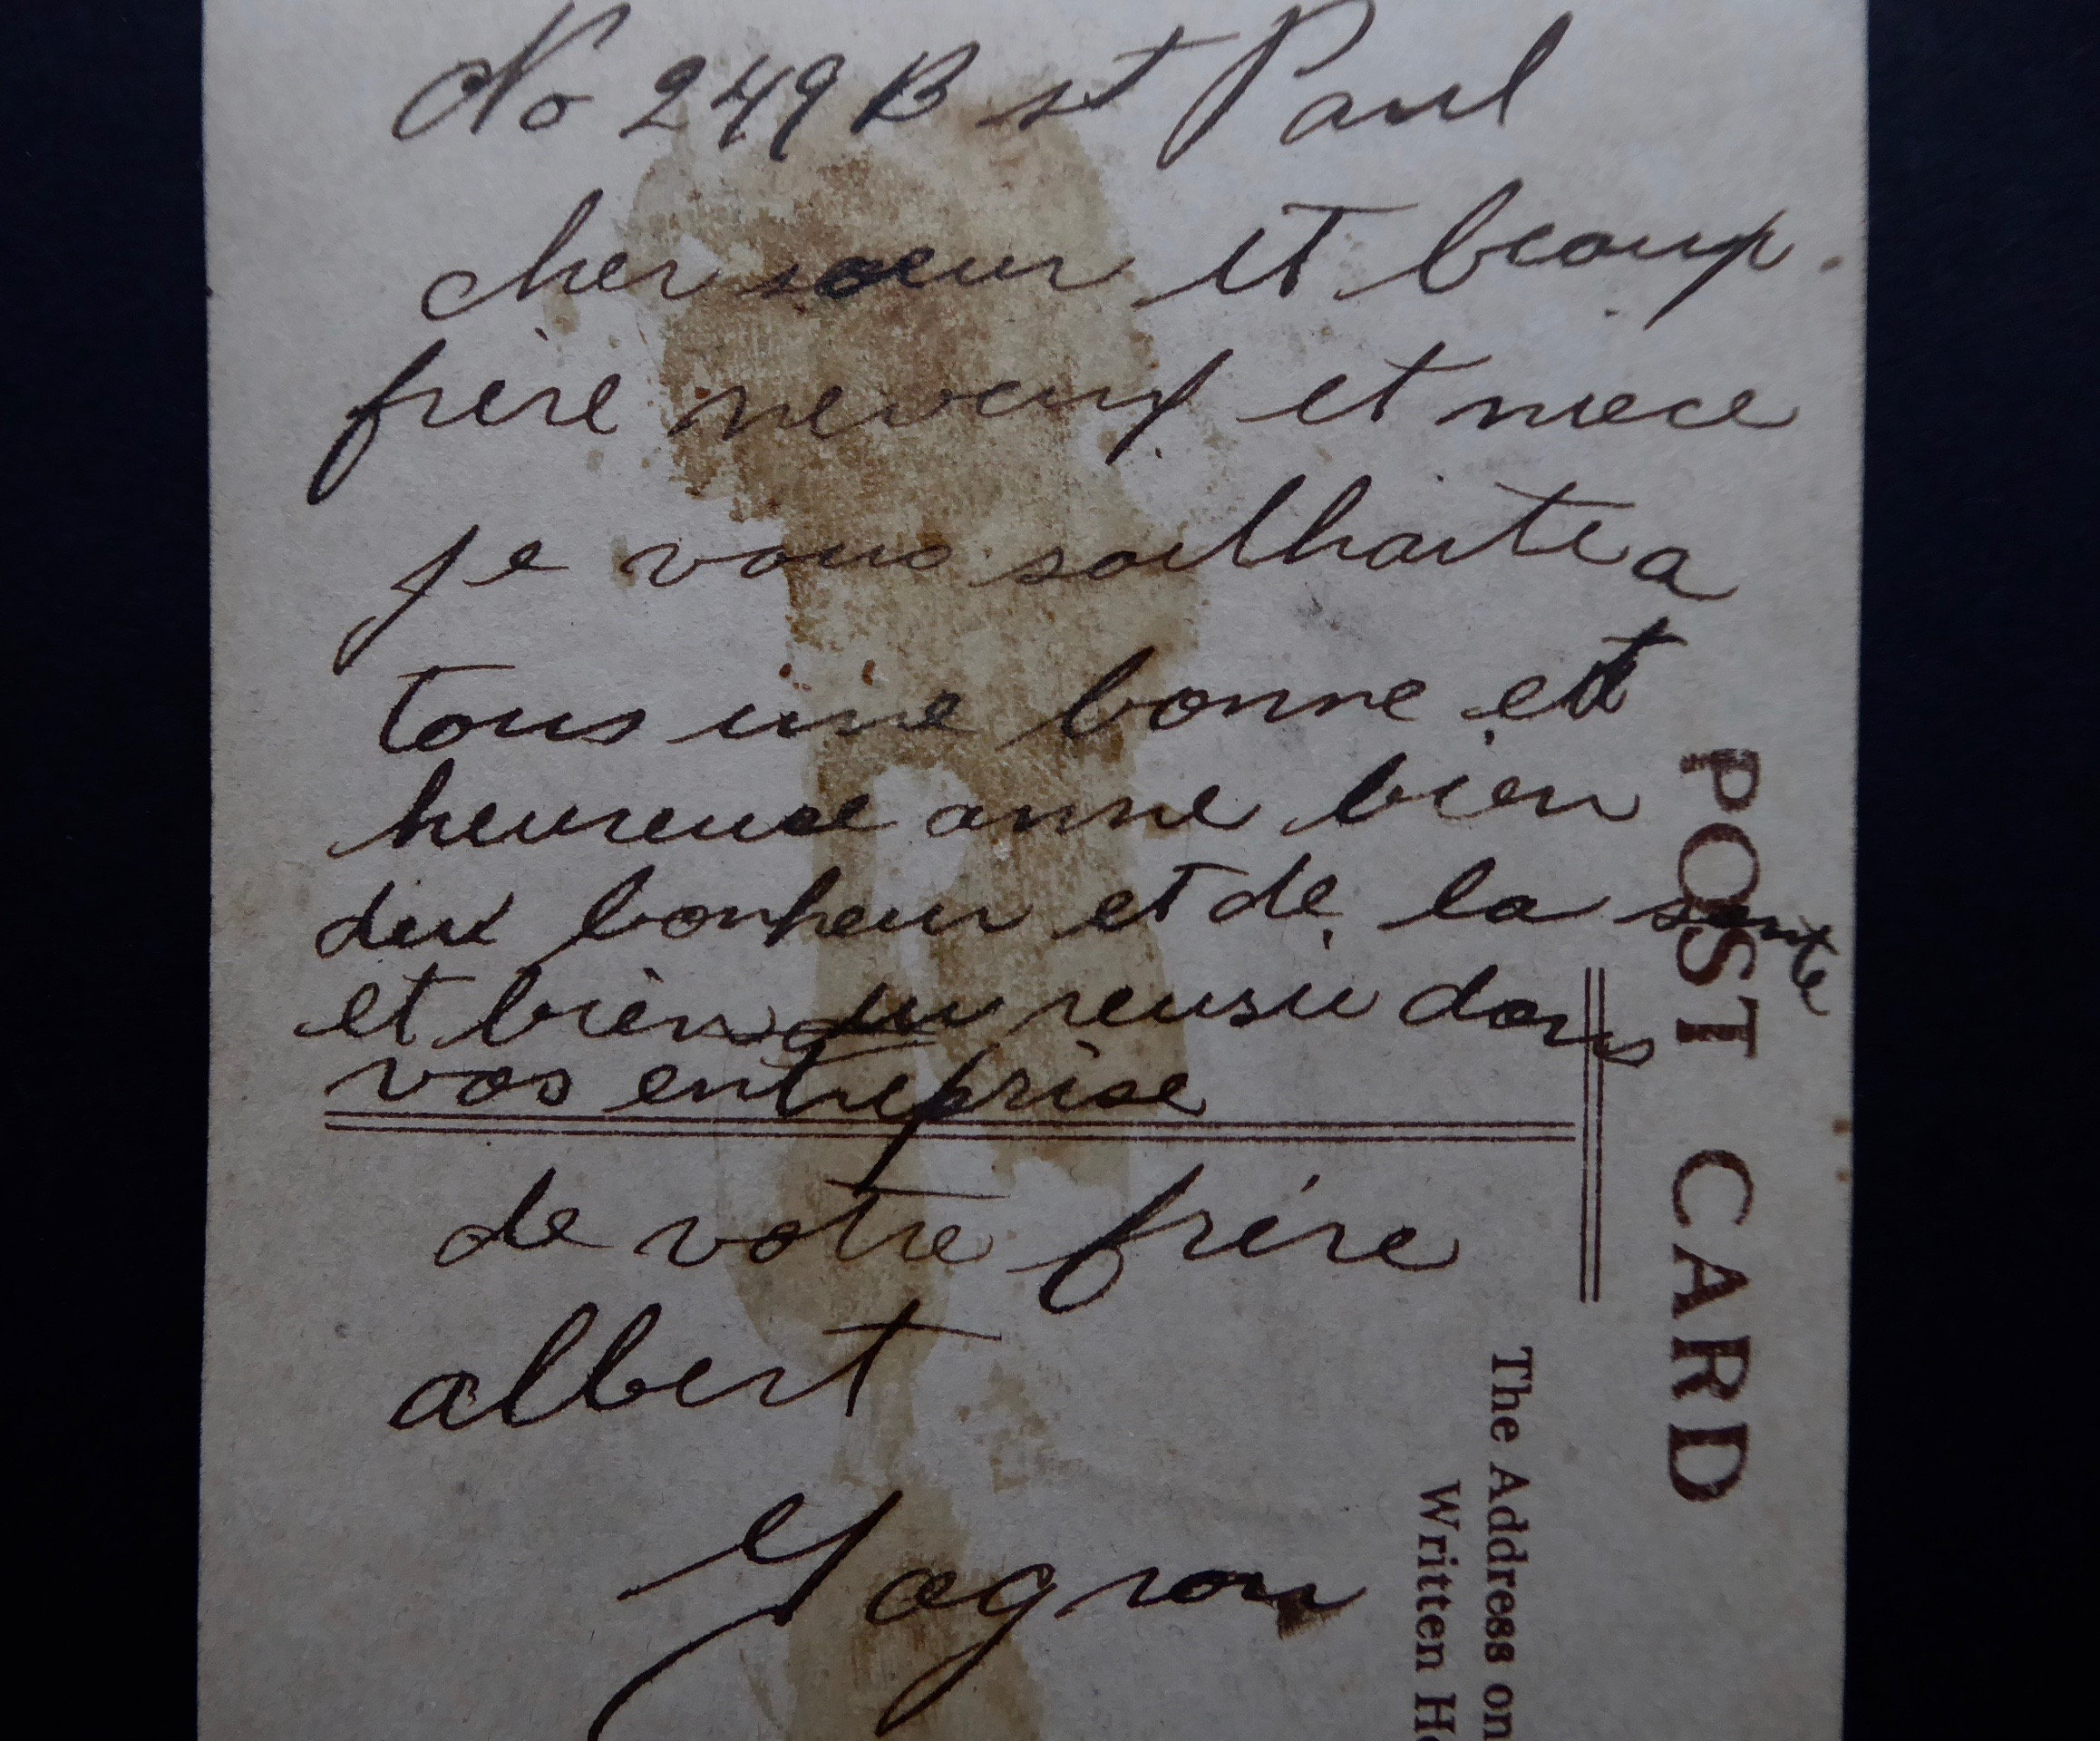 No 249 B st Paul
cher soeur et beoup
frère neveuf et niece
je vous souhaite a
tous une bonne et
heureuse anne bien
dux bonheur et de la sante
et bien reusii dans
vos entreprise
de votre frère
albert
Gagnon
POST CARD
The Address on
Written He